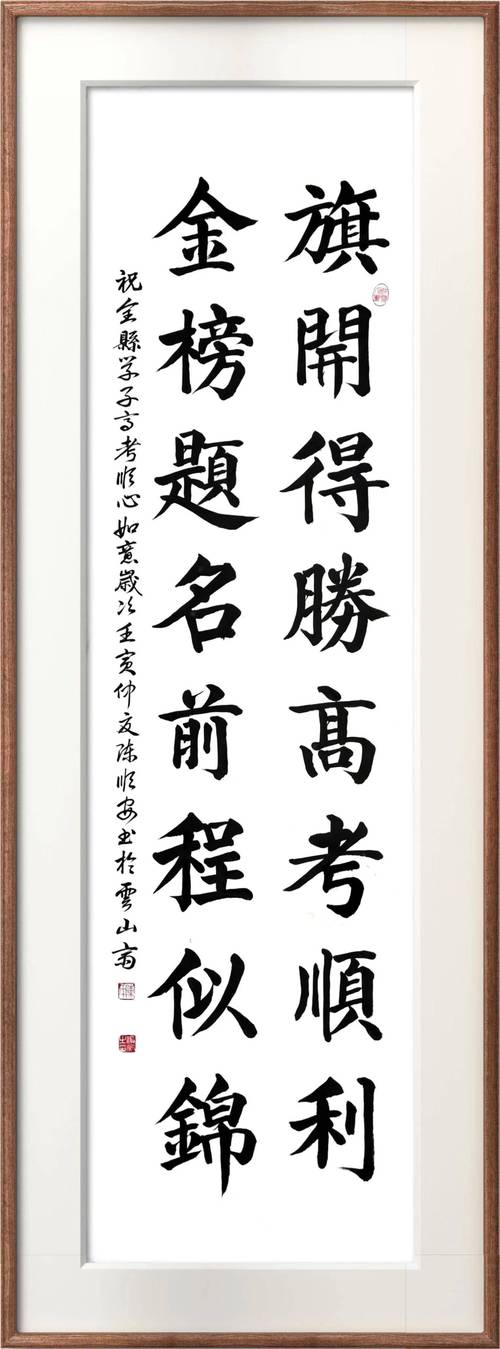 旗開得勝髙考順利
金榜題名前程似錦
祝全縣学子高考順心如意歲次壬寅仲夏陈順安书於雲山斋